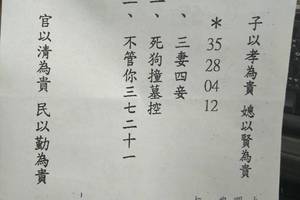 子以孝為貴 媳以賢為貴
＊35 28 04 12
三妻四妾
一、死狗撞墓控
一、不管你三七二十一
官以清為貴 民以勤為貴